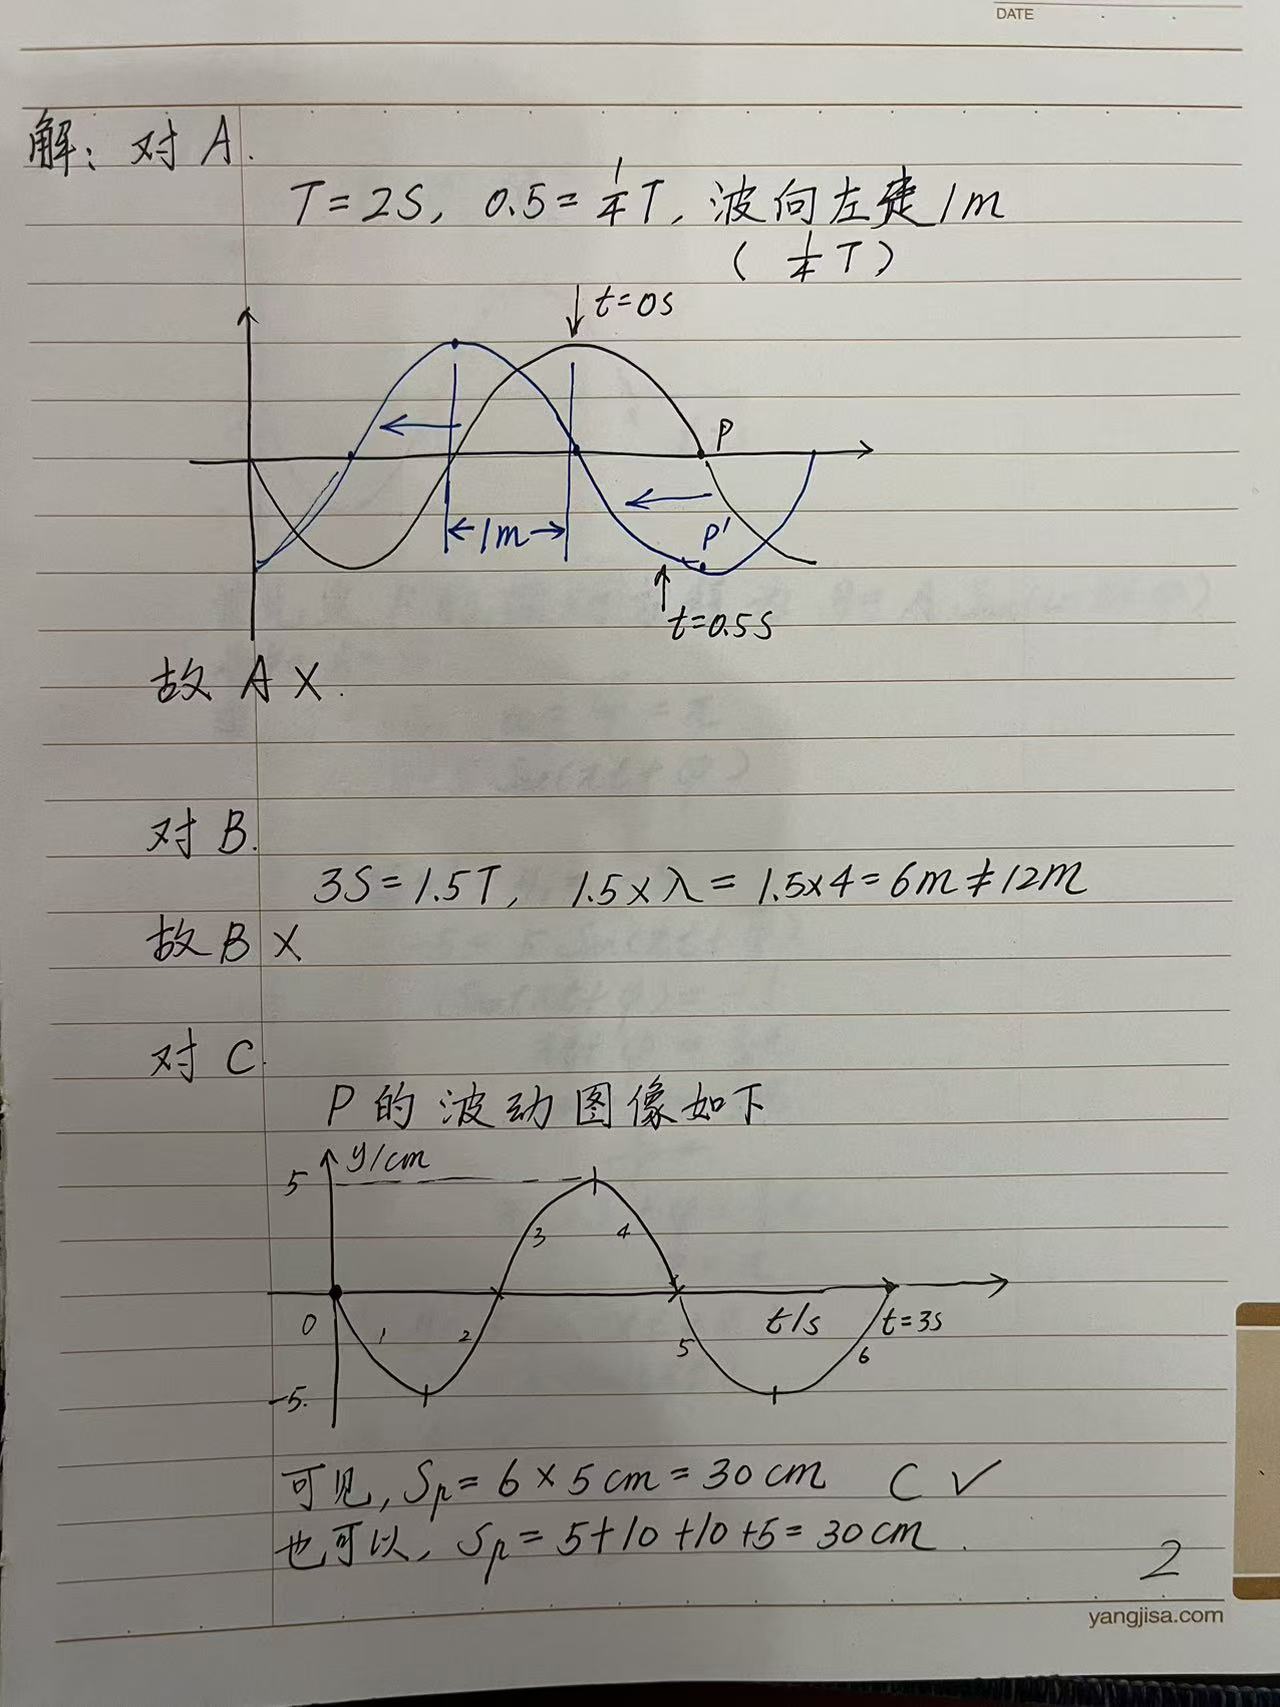 DATE
解: 对 A.
T=2S, 0.5=¼T, 波向左走1m
(¼T)
t=0s
P
←1m→
P'
t=0.5S
故 A ×.
对 B.
3S=1.5T, 1.5×λ=1.5×4=6m≠12m
故 B ×
对 C.
P 的 波动图像如下
y/cm
5
3 4
0 1 2 5 t/s 6 t=3s
-5.
可见, Sp=6×5cm=30cm C ✓
也可以, Sp=5+10+10+5=30cm.
2
yangjisa.com